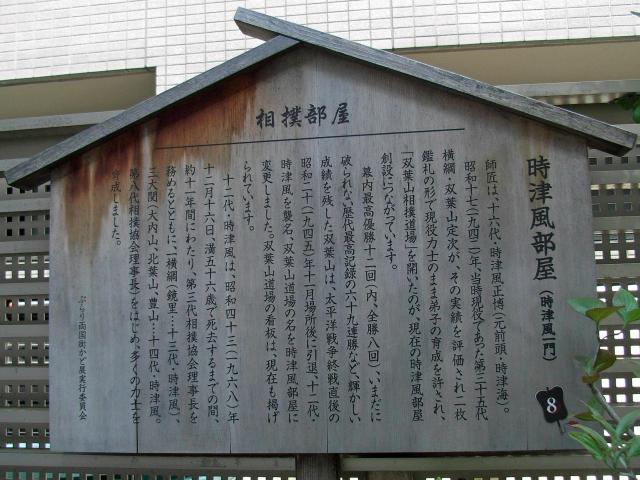 相撲部屋
時津風部屋（時津風一門）
師匠は、十六代・時津風正博（元前頭・時津海）。
昭和十七（一九四二）年、当時現役であった第三十五代
横綱・双葉山定次が、その実績を評価され二枚
鑑札の形で現役力士のまま弟子の育成を許され、
「双葉山相撲道場」を開いたのが、現在の時津風部屋
創設につながっています。
幕内最高優勝十二回（内、全勝八回）、いまだに
破られない歴代最高記録の六十九連勝など、輝かしい
成績を残した双葉山は、太平洋戦争終戦直後の
昭和二十（一九四五）年十一月場所後に引退、十二代・
時津風を襲名。双葉山道場の名を時津風部屋に
変更しました。双葉山道場の看板は、現在も掲げ
られています。
十二代・時津風は、昭和四十三（一九六八）年
十二月十六日、満五十六歳で死去するまでの間、
約十一年間にわたり、第三代相撲協会理事長を
務めるとともに、一横綱（鏡里…十三代・時津風）、
三大関（大内山、北葉山、豊山…十四代、時津風。
第八代相撲協会理事長）をはじめ、多くの力士を
育成しました。
ぶらり両国街かど展実行委員会
8